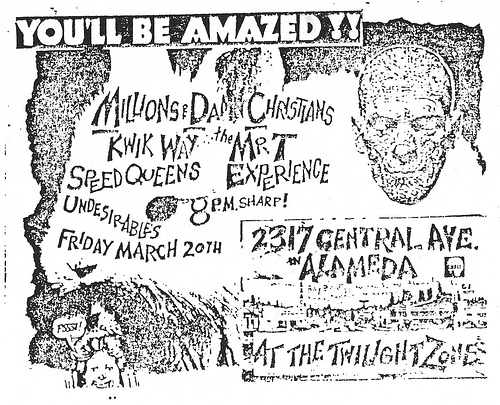 YOU'LL BE AMAZED !!
MILLIONS OF DAMN CHRISTIANS
KWIK WAY ...the MR. T
SPEED QUEENS EXPERIENCE
UNDESIRABLES 8 P.M. SHARP!
FRIDAY MARCH 20TH
2317 CENTRAL AVE.
IN ALAMEDA
AT THE TWILIGHT ZONE
FSSSI!